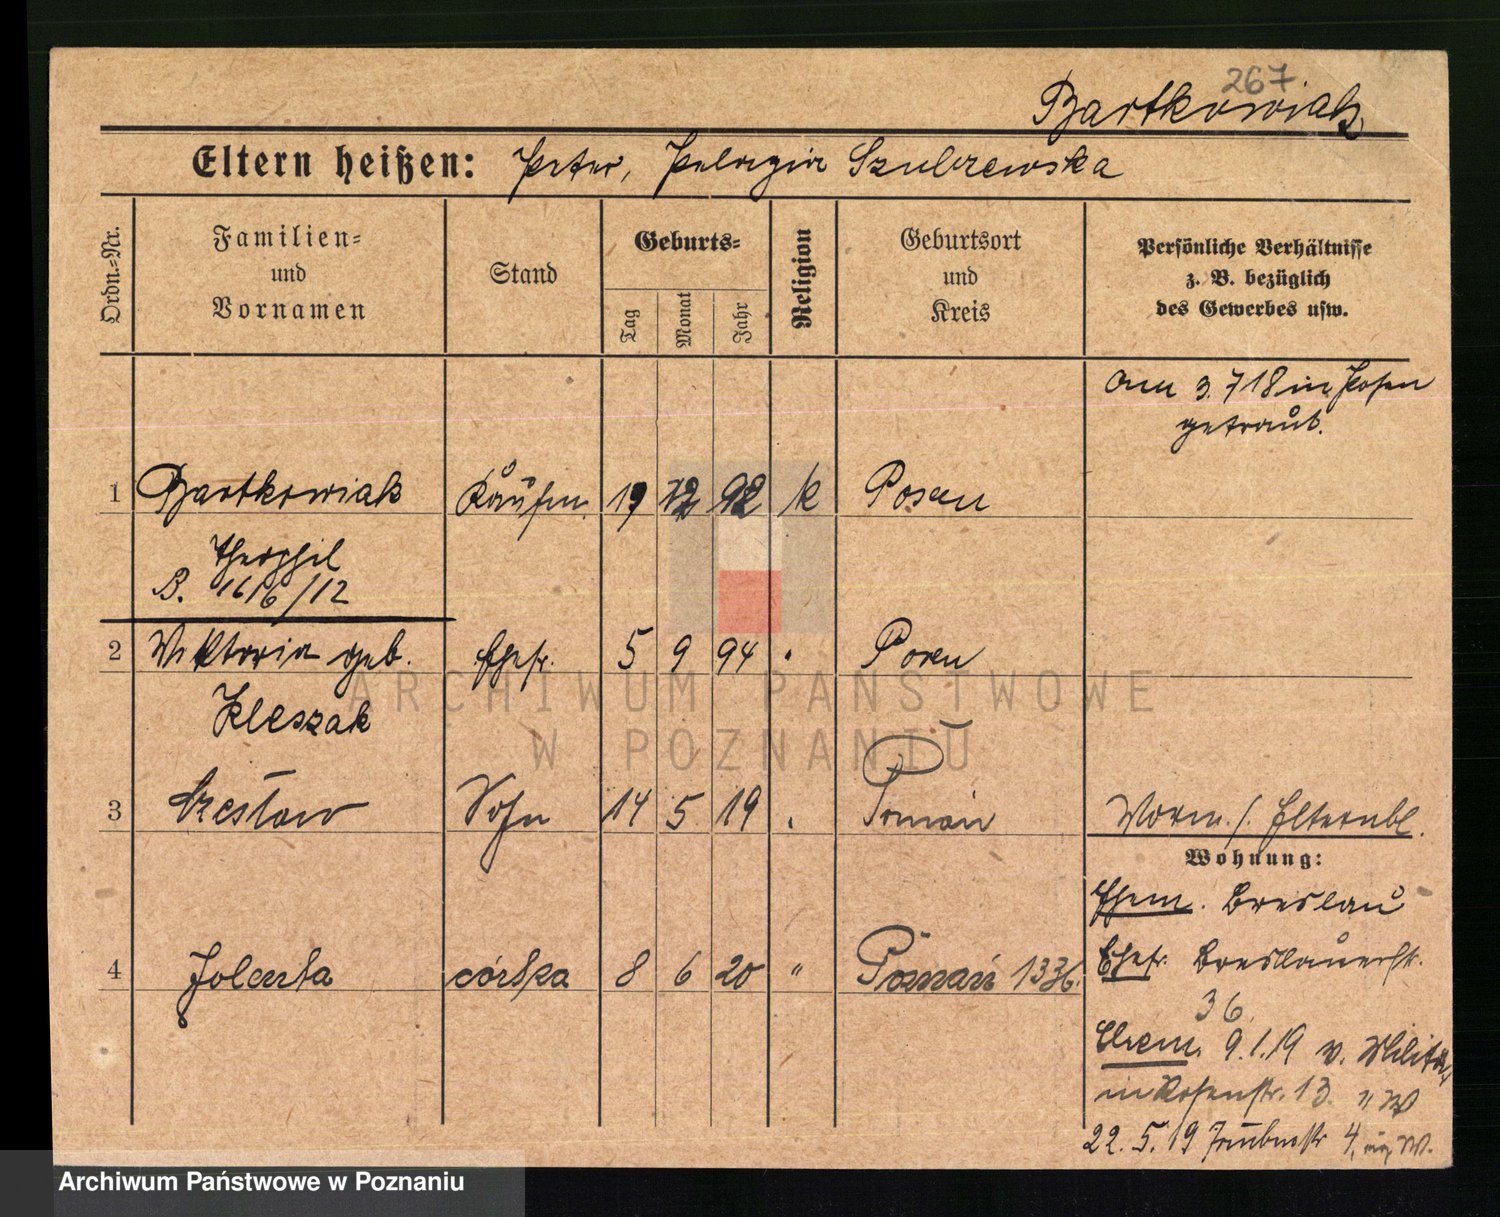 267
Bartkowiak
Eltern heißen: Peter, Pelagia Szubzewska
Ordn.=Nr.
Familien=
und
Vornamen
Stand
Geburts=
Tag
Monat
Jahr
Religion
Geburtsort
und
Kreis
Persönliche Verhältnisse
z. B. bezüglich
des Gewerbes usw.
am 3. 7 18 in Posen
getraut.
1 Bartkowiak Kaufm. 19 12 92 k Posen
Theophil
B. 1616/12
2 Viktoria geb. Ehefr. 5 9 94 Posen
Kleszak
3 Czesław Sohn 14 5 19 Poznań
Worm. s. Elternbl.
Wohnung:
Ehem. Breslau
Ehefr. Breslauerstr.
36.
4 Jolenta córka 8 6 20 " Poznań
Ehem. 9.1.19 v. Militär
in Rosenstr. 13. " W
22. 5. 19 4, W.
ARCHIWUM PAŃSTWOWE
W POZNANIU
Archiwum Państwowe w Poznaniu